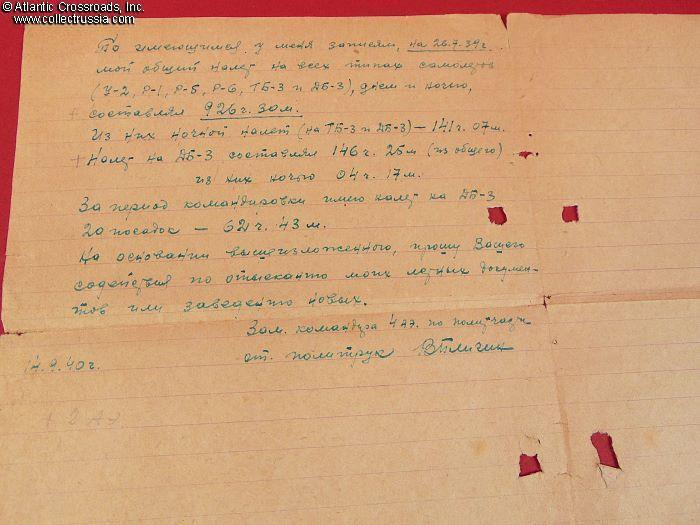 © Atlantic Crossroads, Inc.
www.collectrussia.com
По имеющимся у меня записям, на 26.7.39г.
мой общий налет на всех типах самолетов
(У-2, Р-1, Р-5, Р-6, ТБ-3 и ДБ-3), днем и ночью,
+ составлял 926 ч. 30 м.
Из них ночной налет (на ТБ-3 и ДБ-3) – 141 ч. 07 м.
+ Налет на ДБ-3 составлял 146 ч. 25 м (из общего)
из них ночью 04 ч. 17 м.
За период командировки имею налет на ДБ-3
20 посадок – 62 ч. 43 м.
На основании вышеизложенного, прошу Вашего
содействия по отысканию моих летных докумен-
тов или заведению новых.
Зам. командира 4 АЭ. по политчасти
ст. политрук
14.9.40 г.
+ 2 АЭ.